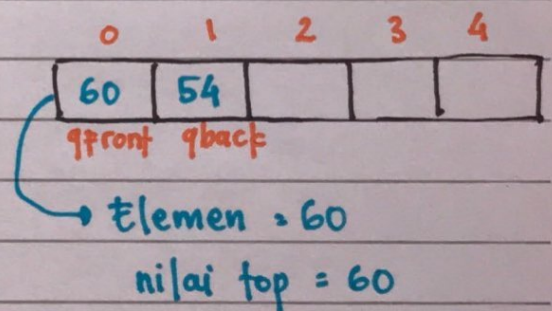 0 1 2 3 4
60 54
qfront qback
Elemen = 60
nilai top = 60